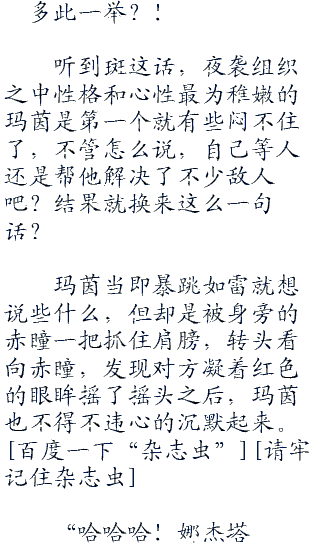 多此一举？！
听到斑这话，夜袭组织
之中性格和心性最为稚嫩的
玛茵是第一个就有些闷不住
了，不管怎么说，自己等人
还是帮他解决了不少敌人
吧？结果就换来这么一句
话？
玛茵当即暴跳如雷就想
说些什么，但却是被身旁的
赤瞳一把抓住肩膀，转头看
向赤瞳，发现对方凝着红色
的眼眸摇了摇头之后，玛茵
也不得不违心的沉默起来。
[百度一下“杂志虫”][请牢
记住杂志虫]
“哈哈哈！娜杰塔